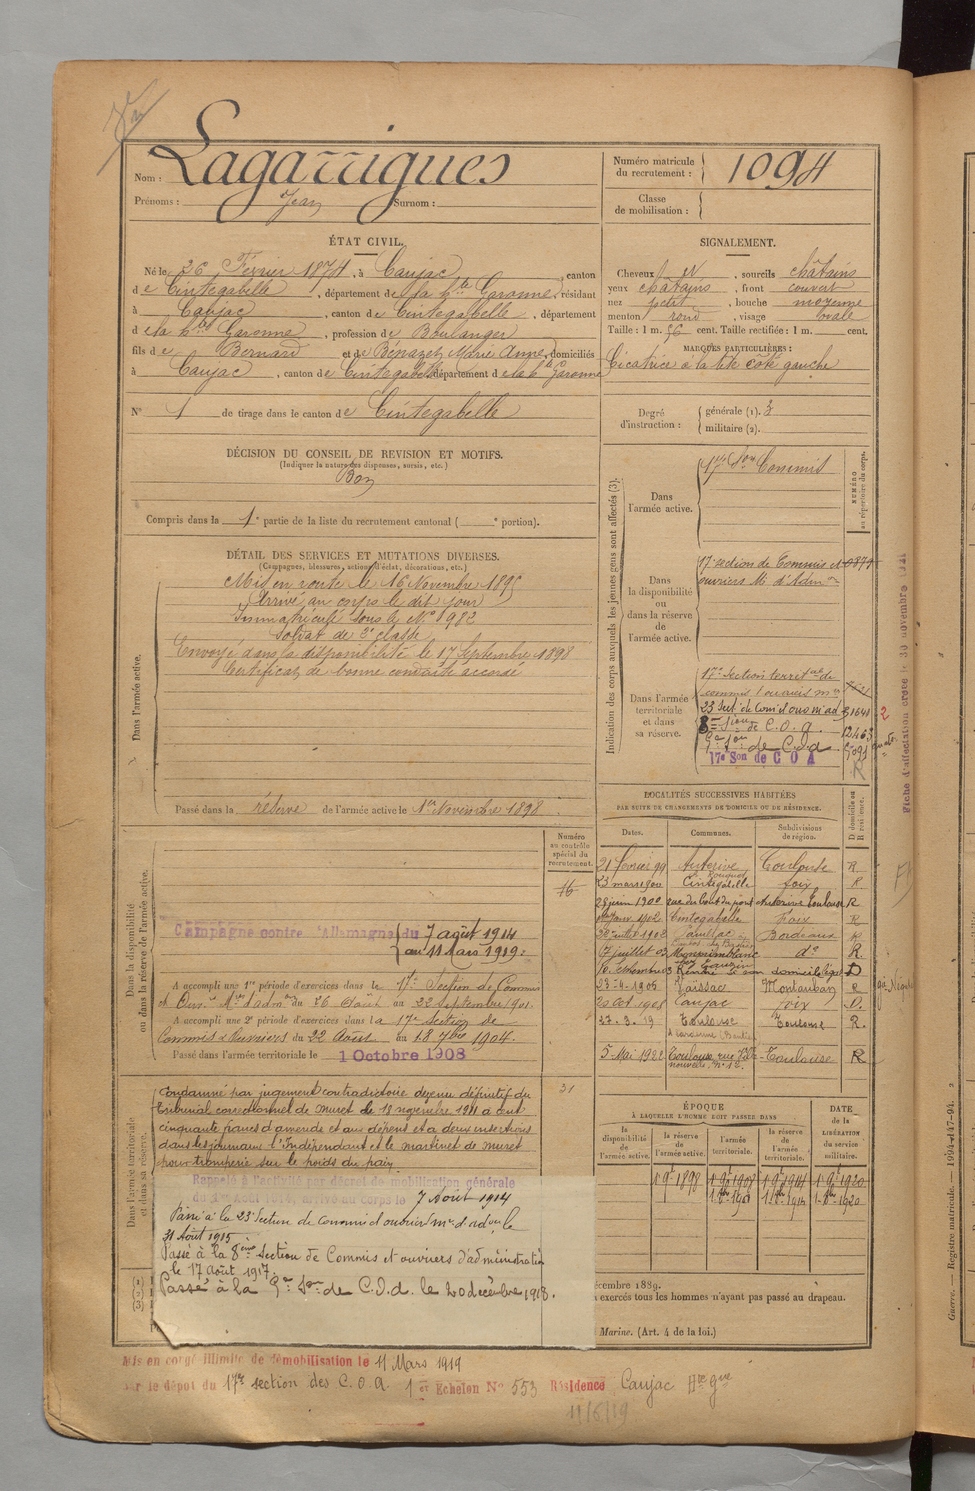 Nom : Lagarrigues
Prénoms : Jean Surnom :
Numéro matricule du recrutement : 1094
Classe de mobilisation :
ÉTAT CIVIL.
Né le 26 Février 1874, à Caujac, canton
de Cintegabelle, département de la hte Garonne, résidant
à Caujac, canton de Cintegabelle, département
de la hte Garonne, profession de Boulanger
fils de Bernard et de Bépazet Marie Anne, domiciliés
à Caujac, canton de Cintegabelle département de la hte Garonne
N° 1 de tirage dans le canton de Cintegabelle
SIGNALEMENT.
Cheveux, sourcils châtains
yeux châtains, front couvert
nez petit, bouche moyenne
menton rond, visage ovale
Taille : 1 m. 56 cent. Taille rectifiée : 1 m. cent.
MARQUES PARTICULIÈRES :
Cicatrice à la tête côté gauche
Degré d'instruction : générale (1). 3
militaire (2).
DÉCISION DU CONSEIL DE REVISION ET MOTIFS.
(Indiquer la nature des dispenses, sursis, etc.)
Bon
Compris dans la 1e partie de la liste du recrutement cantonal ( e portion).
DÉTAIL DES SERVICES ET MUTATIONS DIVERSES.
(Campagnes, blessures, actions d'éclat, décorations, etc.)
Dans l'armée active.
Mis en route le 16 Novembre 1895
Arrivé au corps le dit jour
Immatriculé sous le N° 982
Soldat de 2e classe
Envoyé dans la disponibilité le 17 Septembre 1898
Certificat de bonne conduite accordé
Passé dans la réserve de l'armée active le 1er Novembre 1898
Indication des corps auxquels les jeunes gens sont affectés (3).
NUMÉRO au répertoire du corps.
Dans l'armée active.
17e Son Commis
Dans la disponibilité ou dans la réserve de l'armée active.
17 section de Commis et
ouvriers M. d'Admon
Dans l'armée territoriale et dans sa réserve.
17e Section territale de
commis & ouvriers mre
23 Sect. de Com et ouv m ad
8me Sion de C.O.A.
9e Son de C.O.A
17e Son de C O A
Fiche d'affectation créée le 30 novembre 1921
LOCALITÉS SUCCESSIVES HABITÉES
PAR SUITE DE CHANGEMENTS DE DOMICILE OU DE RÉSIDENCE.
D domicile ou R résidence.
Dates. Communes. Subdivisions de région.
21 février 99 Auterive Toulouse R
23 mars 1900 Cintegabelle foix R
28 juin 1900 rue du bout du pont Auterive Toulouse R
1902 Cintegabelle Foix R
1902 Pauillac Bordeaux R
17 juillet 03 Monprimblanc do R.
16 Septembre 03 Rentré à son domicile légal D
23-4-1905 Vaissac Montauban R
20 Oct 1905 Caujac foix D.
27. 3. 19 Toulouse Toulouse R.
5-Mai 1922 Toulouse rue Toulouse R
nouvelle, n° 12.
Numéro au contrôle spécial du recrutement.
Dans la disponibilité ou dans la réserve de l'armée active.
Campagne contre l'Allemagne du 7 août 1914
au 11 Mars 1919.
A accompli une 1re période d'exercices dans la 17e Section de Commis
et Ouv. Mre d'adm du 26 Août au 22 septembre 1901.
A accompli une 2e période d'exercices dans la 17e section de
Commis & ouvriers du 22 Août au 18 7bre 1904.
Passé dans l'armée territoriale le 1 Octobre 1908
Dans l'armée territoriale et dans sa réserve.
31
Condamné par jugement contradictoire devenu définitif du
tribunal correctionnel de muret le 18 novembre 1911 à cent
cinquante francs d'amende et aux dépens et à deux insertions
dans les journaux l'Indépendant et le martinet de muret
pour tromperie sur le poids du pain
Rappelé à l'activité par décret de mobilisation générale
du 1er Août 1914, arrivé au corps le 7 Août 1914
Passé à la 23e Section de Commis et ouvriers mre d'adon le
31 Août 1915
Passé à la 8ème Section de Commis et ouvriers d'administration
le 17 août 1917.
Passé à la 9e Son de C.O.A. le 20 décembre 1918.
ÉPOQUE
À LAQUELLE L'HOMME DOIT PASSER DANS
DATE de la LIBÉRATION du service militaire.
la disponibilité de l'armée active. la réserve de l'armée active. l'armée territoriale. la réserve de l'armée territoriale.
1 9bre 1898 1 9bre 1908 1 9bre 1914 1 9bre 1920
1 8bre 1908 1 8bre 1914 1 8bre 1920
écembre 1889.
exercés tous les hommes n'ayant pas passé au drapeau.
Marine. (Art. 4 de la loi.)
Mis en congé illimité de démobilisation le 11 Mars 1919
par le dépot du 17e section des C.O.A 1er Echelon N° 553 Résidence Caujac Hte Gne
11/6/19
Guerre. — Registre matricule. — 1994-147-94. 2